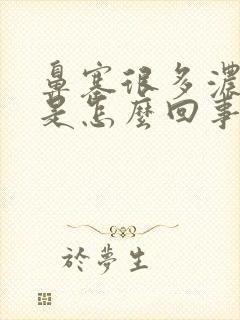 鼻塞很多濃
是怎麼回事
於夢生